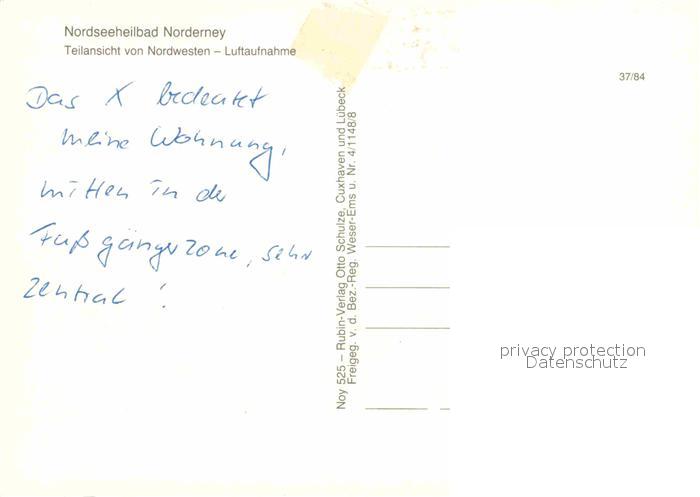 Nordseeheilbad Norderney
Teilansicht von Nordwesten – Luftaufnahme
Das X bedeutet
meine Wohnung,
mitten in der
Fußgängerzone, sehr
zentral !
Noy 525 – Rubin-Verlag Otto Schulze, Cuxhaven und Lübeck
Freigeg. v. d. Bez.-Reg. Weser-Ems u. Nr. 4/1148/8
37/84
privacy protection
Datenschutz